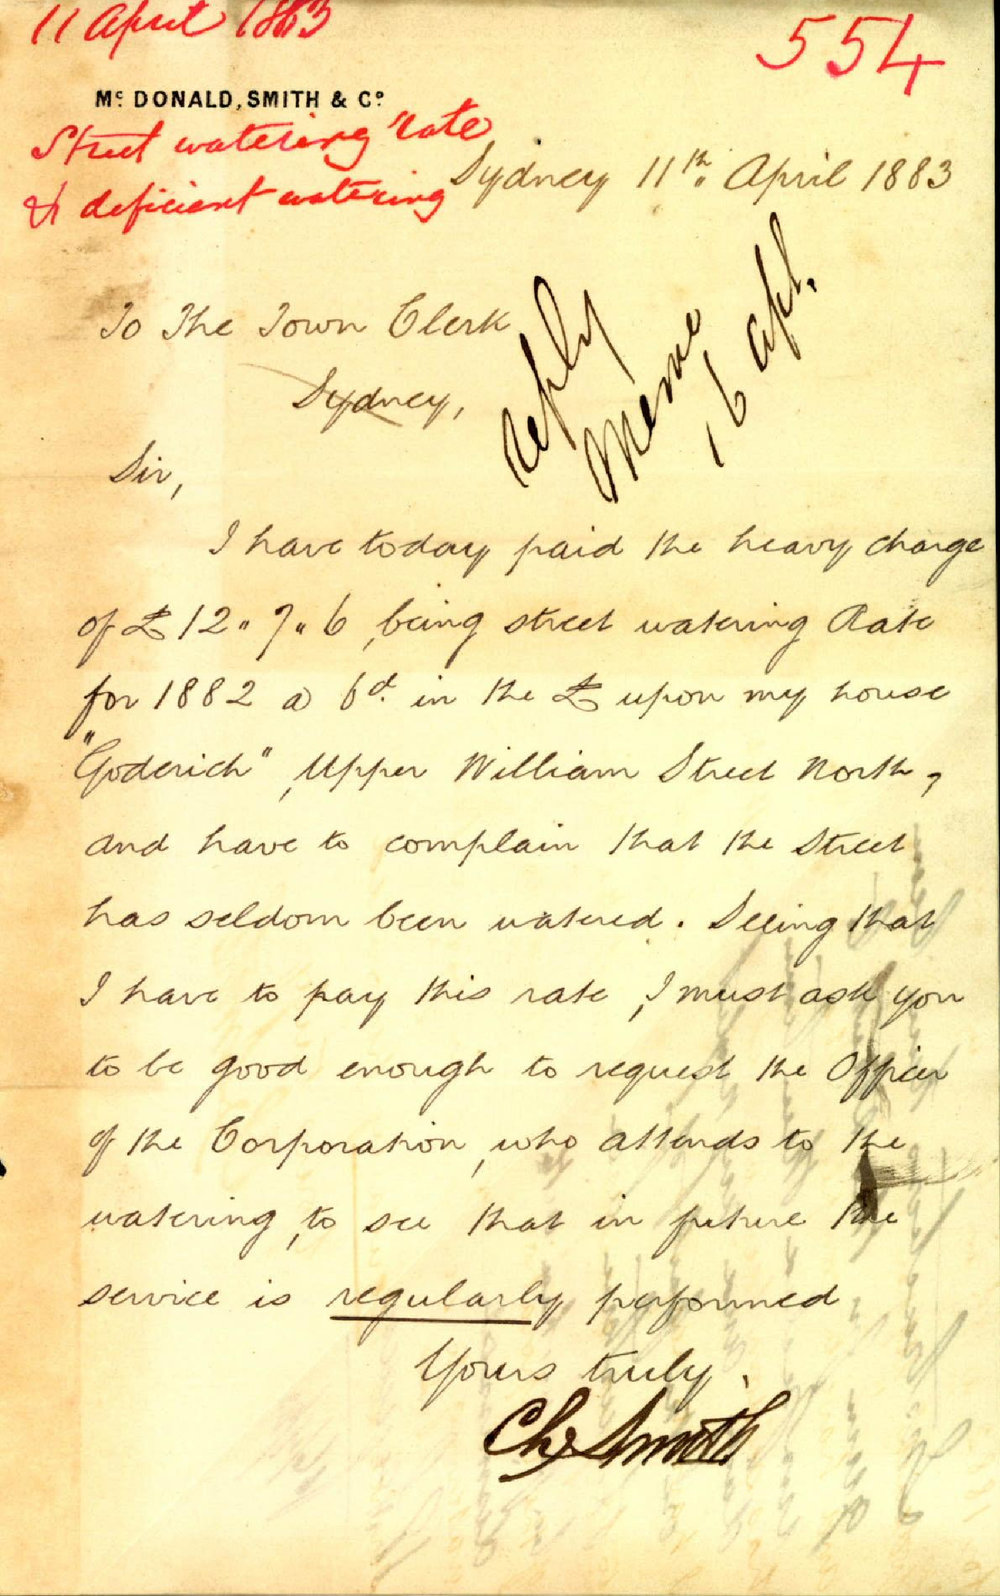 11 April 1883
554
Mc DONALD, SMITH & Co
Street watering rate
& deficient watering
Sydney 11th. April 1883
reply
Memo
16 apl.
To The Town Clerk
Sydney,
Sir,
I have today paid the heavy charge
of £12.7.6, being street watering Rate
for 1882 @ 6d. in the £ upon my house
"Goderich", Upper William Street North,
and have to complain that the street
has seldom been watered. Seeing that
I have to pay this rate, I must ask you
to be good enough to request the Officer
of the Corporation, who attends to the
watering, to see that in future the
service is regularly performed
Yours truly,
Chs Smith